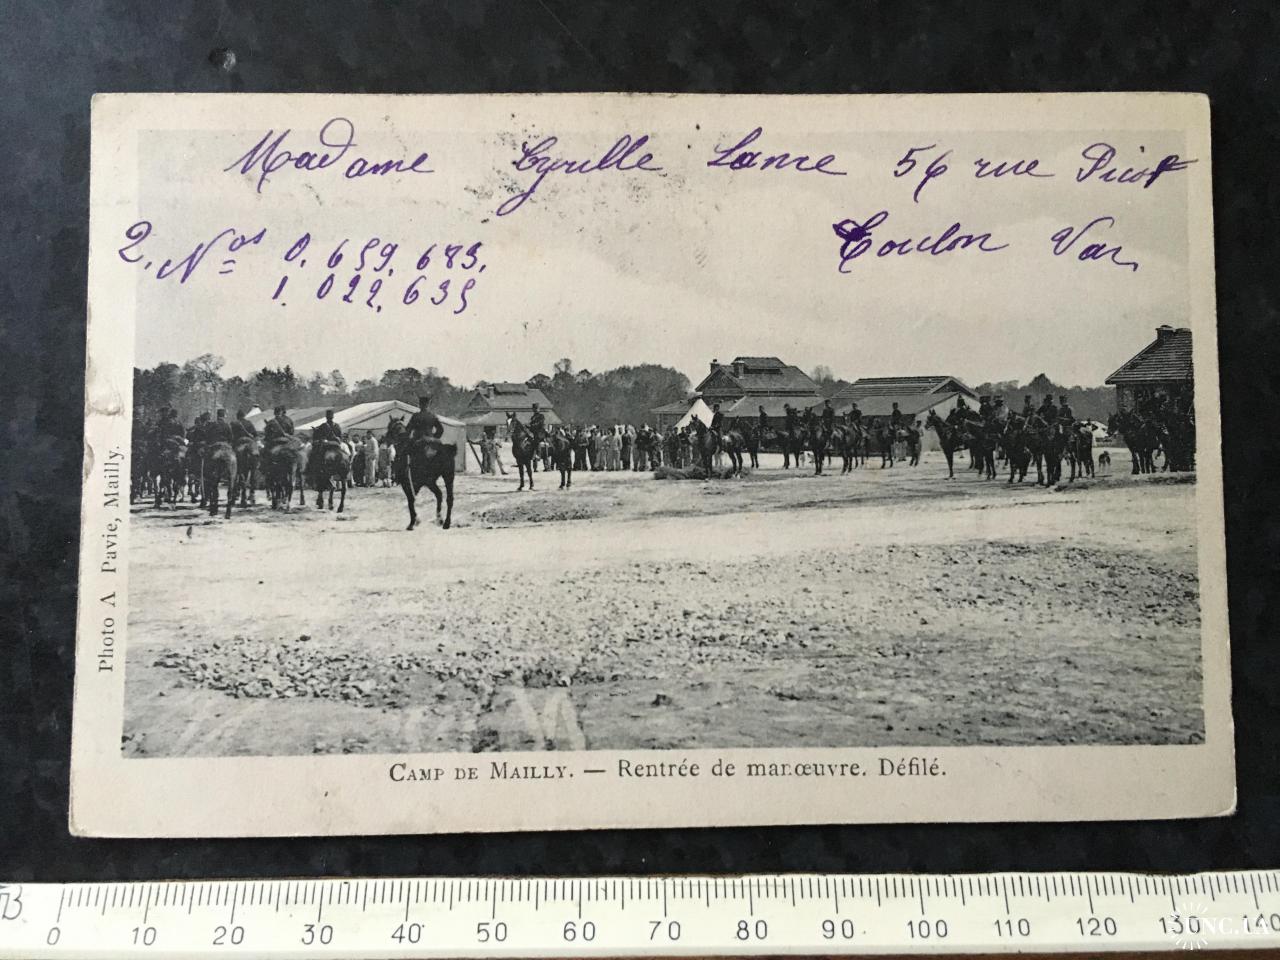 Madame Cyrille Lanre 56 rue Picot
Toulon Var
2. Nos 0. 659. 683.
1. 022. 635
Photo A Pavie, Mailly.
CAMP DE MAILLY. — Rentrée de manœuvre. Défilé.
0 10 20 30 40 50 60 70 80 90 100 110 120 130 140